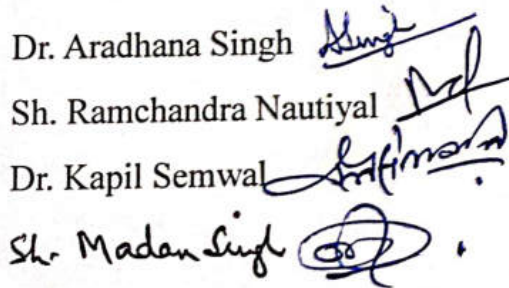 Dr. Aradhana Singh ASingh
Sh. Ramchandra Nautiyal
Dr. Kapil Semwal
Sh. Madan Singh